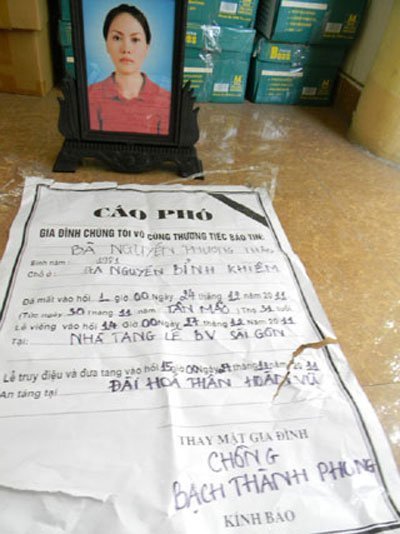 BOSS
CÁO PHÓ
GIA ĐÌNH CHÚNG TÔI VÔ CÙNG THƯƠNG TIẾC BÁO TIN:
BÃ NGUYỄN PHƯƠNG THẢO
Sinh năm: 1971
Chỗ ở: 8A NGUYỄN BỈNH KHIÊM
Đã mất vào hồi 1 giờ 00 Ngày 24 tháng 12 năm 2011
(Tức ngày 30 tháng 11 năm TÂN MÃO) Thọ 31 tuổi
Lễ viếng vào hồi 14 giờ 00 Ngày 27 tháng 12 năm 2011
Tại: NHÀ TANG LỄ BV SÀI GÒN
Lễ truy điệu và đưa tang vào hồi 15 giờ 00 Ngày 27 tháng 12 năm 2011
An táng tại ĐÀI HOÁ THÂN HOÀN VŨ
THAY MẶT GIA ĐÌNH
CHỒNG
BẠCH THÀNH PHONG
KÍNH BÁO